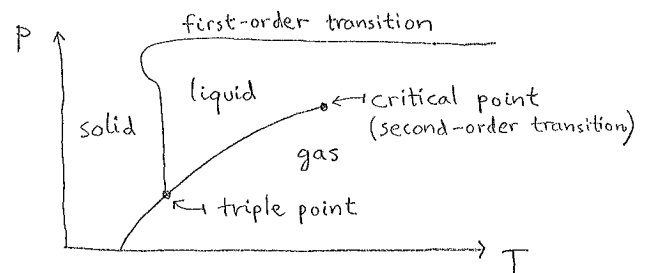 first-order transition
P
liquid
critical point
(second-order transition)
solid
gas
triple point
T